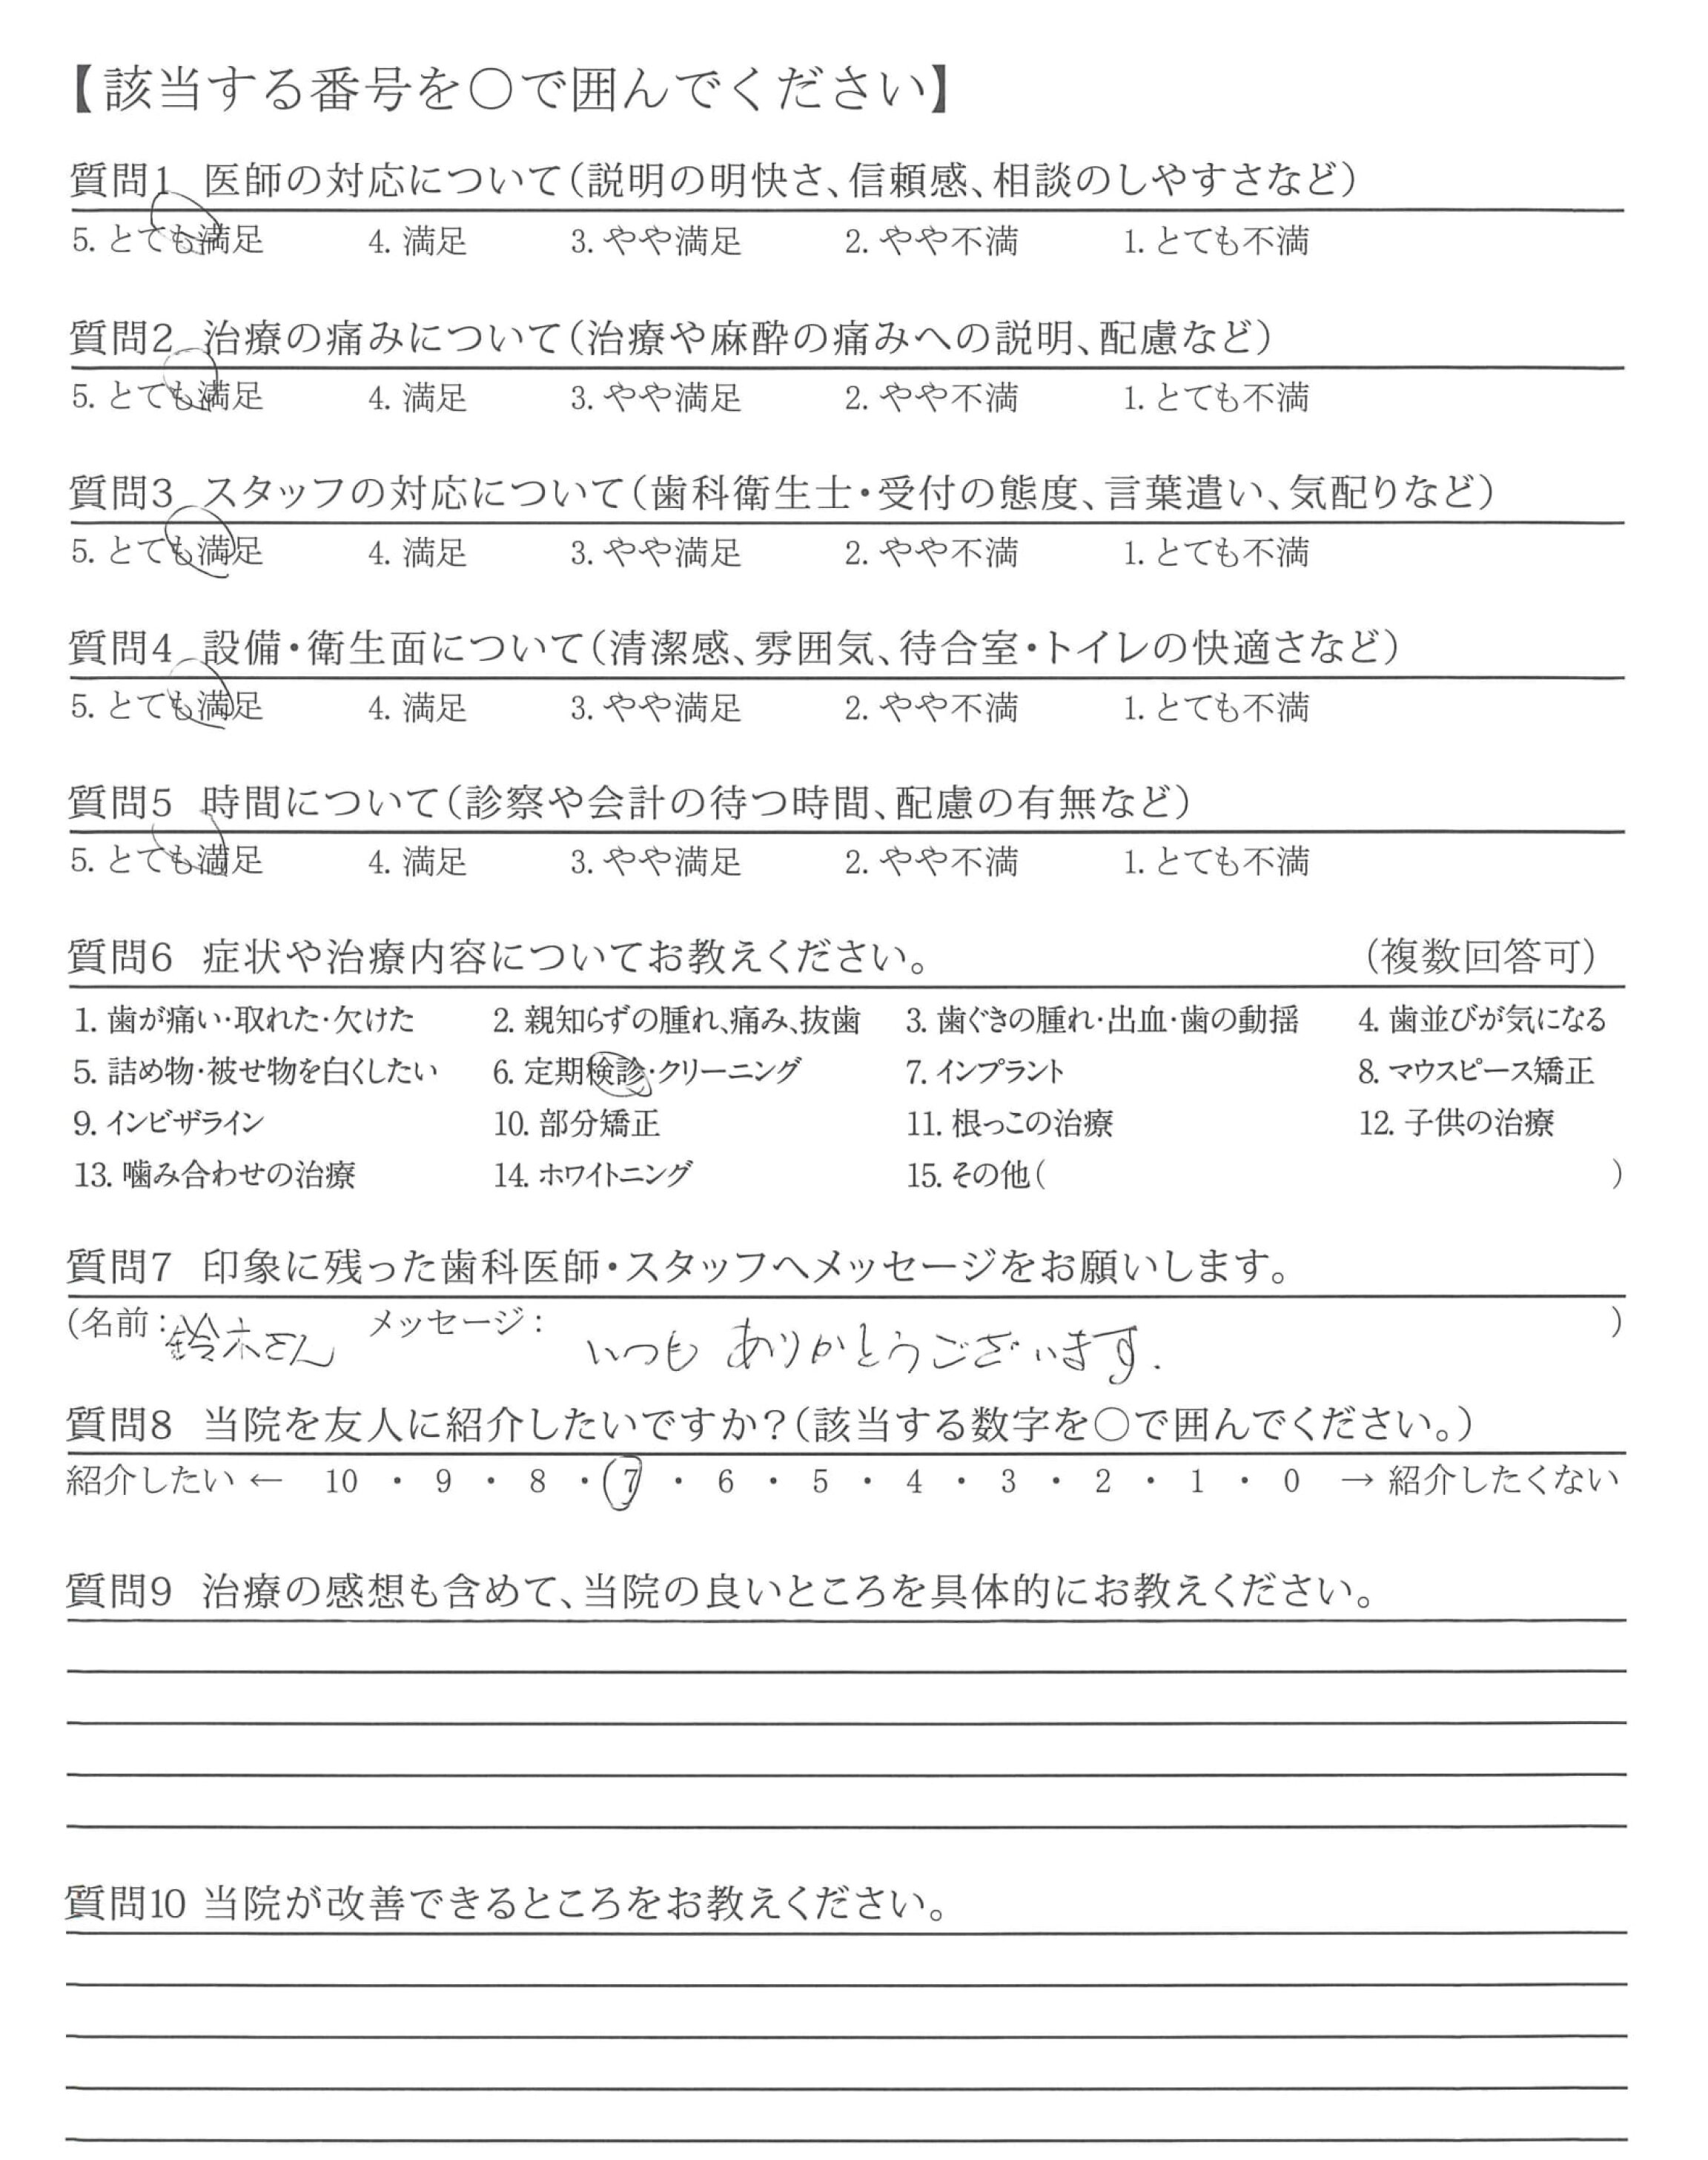 【該当する番号を○で囲んでください】
質問1 医師の対応について(説明の明快さ、信頼感、相談のしやすさなど)
5. とても満足 4. 満足 3. やや満足 2. やや不満 1. とても不満
質問2 治療の痛みについて(治療や麻酔の痛みへの説明、配慮など)
5. とても満足 4. 満足 3. やや満足 2. やや不満 1. とても不満
質問3 スタッフの対応について(歯科衛生士・受付の態度、言葉遣い、気配りなど)
5. とても満足 4. 満足 3. やや満足 2. やや不満 1. とても不満
質問4 設備・衛生面について(清潔感、雰囲気、待合室・トイレの快適さなど)
5. とても満足 4. 満足 3. やや満足 2. やや不満 1. とても不満
質問5 時間について(診察や会計の待つ時間、配慮の有無など)
5. とても満足 4. 満足 3. やや満足 2. やや不満 1. とても不満
質問6 症状や治療内容についてお教えください。 (複数回答可)
1. 歯が痛い・取れた・欠けた 2. 親知らずの腫れ、痛み、抜歯 3. 歯ぐきの腫れ・出血・歯の動揺 4. 歯並びが気になる
5. 詰め物・被せ物を白くしたい 6. 定期検診・クリーニング 7. インプラント 8. マウスピース矯正
9. インビザライン 10. 部分矯正 11. 根っこの治療 12. 子供の治療
13. 噛み合わせの治療 14. ホワイトニング 15. その他( )
質問7 印象に残った歯科医師・スタッフへメッセージをお願いします。
(名前:鈴木さん メッセージ: いつも ありがとうございます. )
質問8 当院を友人に紹介したいですか?(該当する数字を○で囲んでください。)
紹介したい ← 10 ・ 9 ・ 8 ・ 7 ・ 6 ・ 5 ・ 4 ・ 3 ・ 2 ・ 1 ・ 0 → 紹介したくない
質問9 治療の感想も含めて、当院の良いところを具体的にお教えください。
質問10 当院が改善できるところをお教えください。